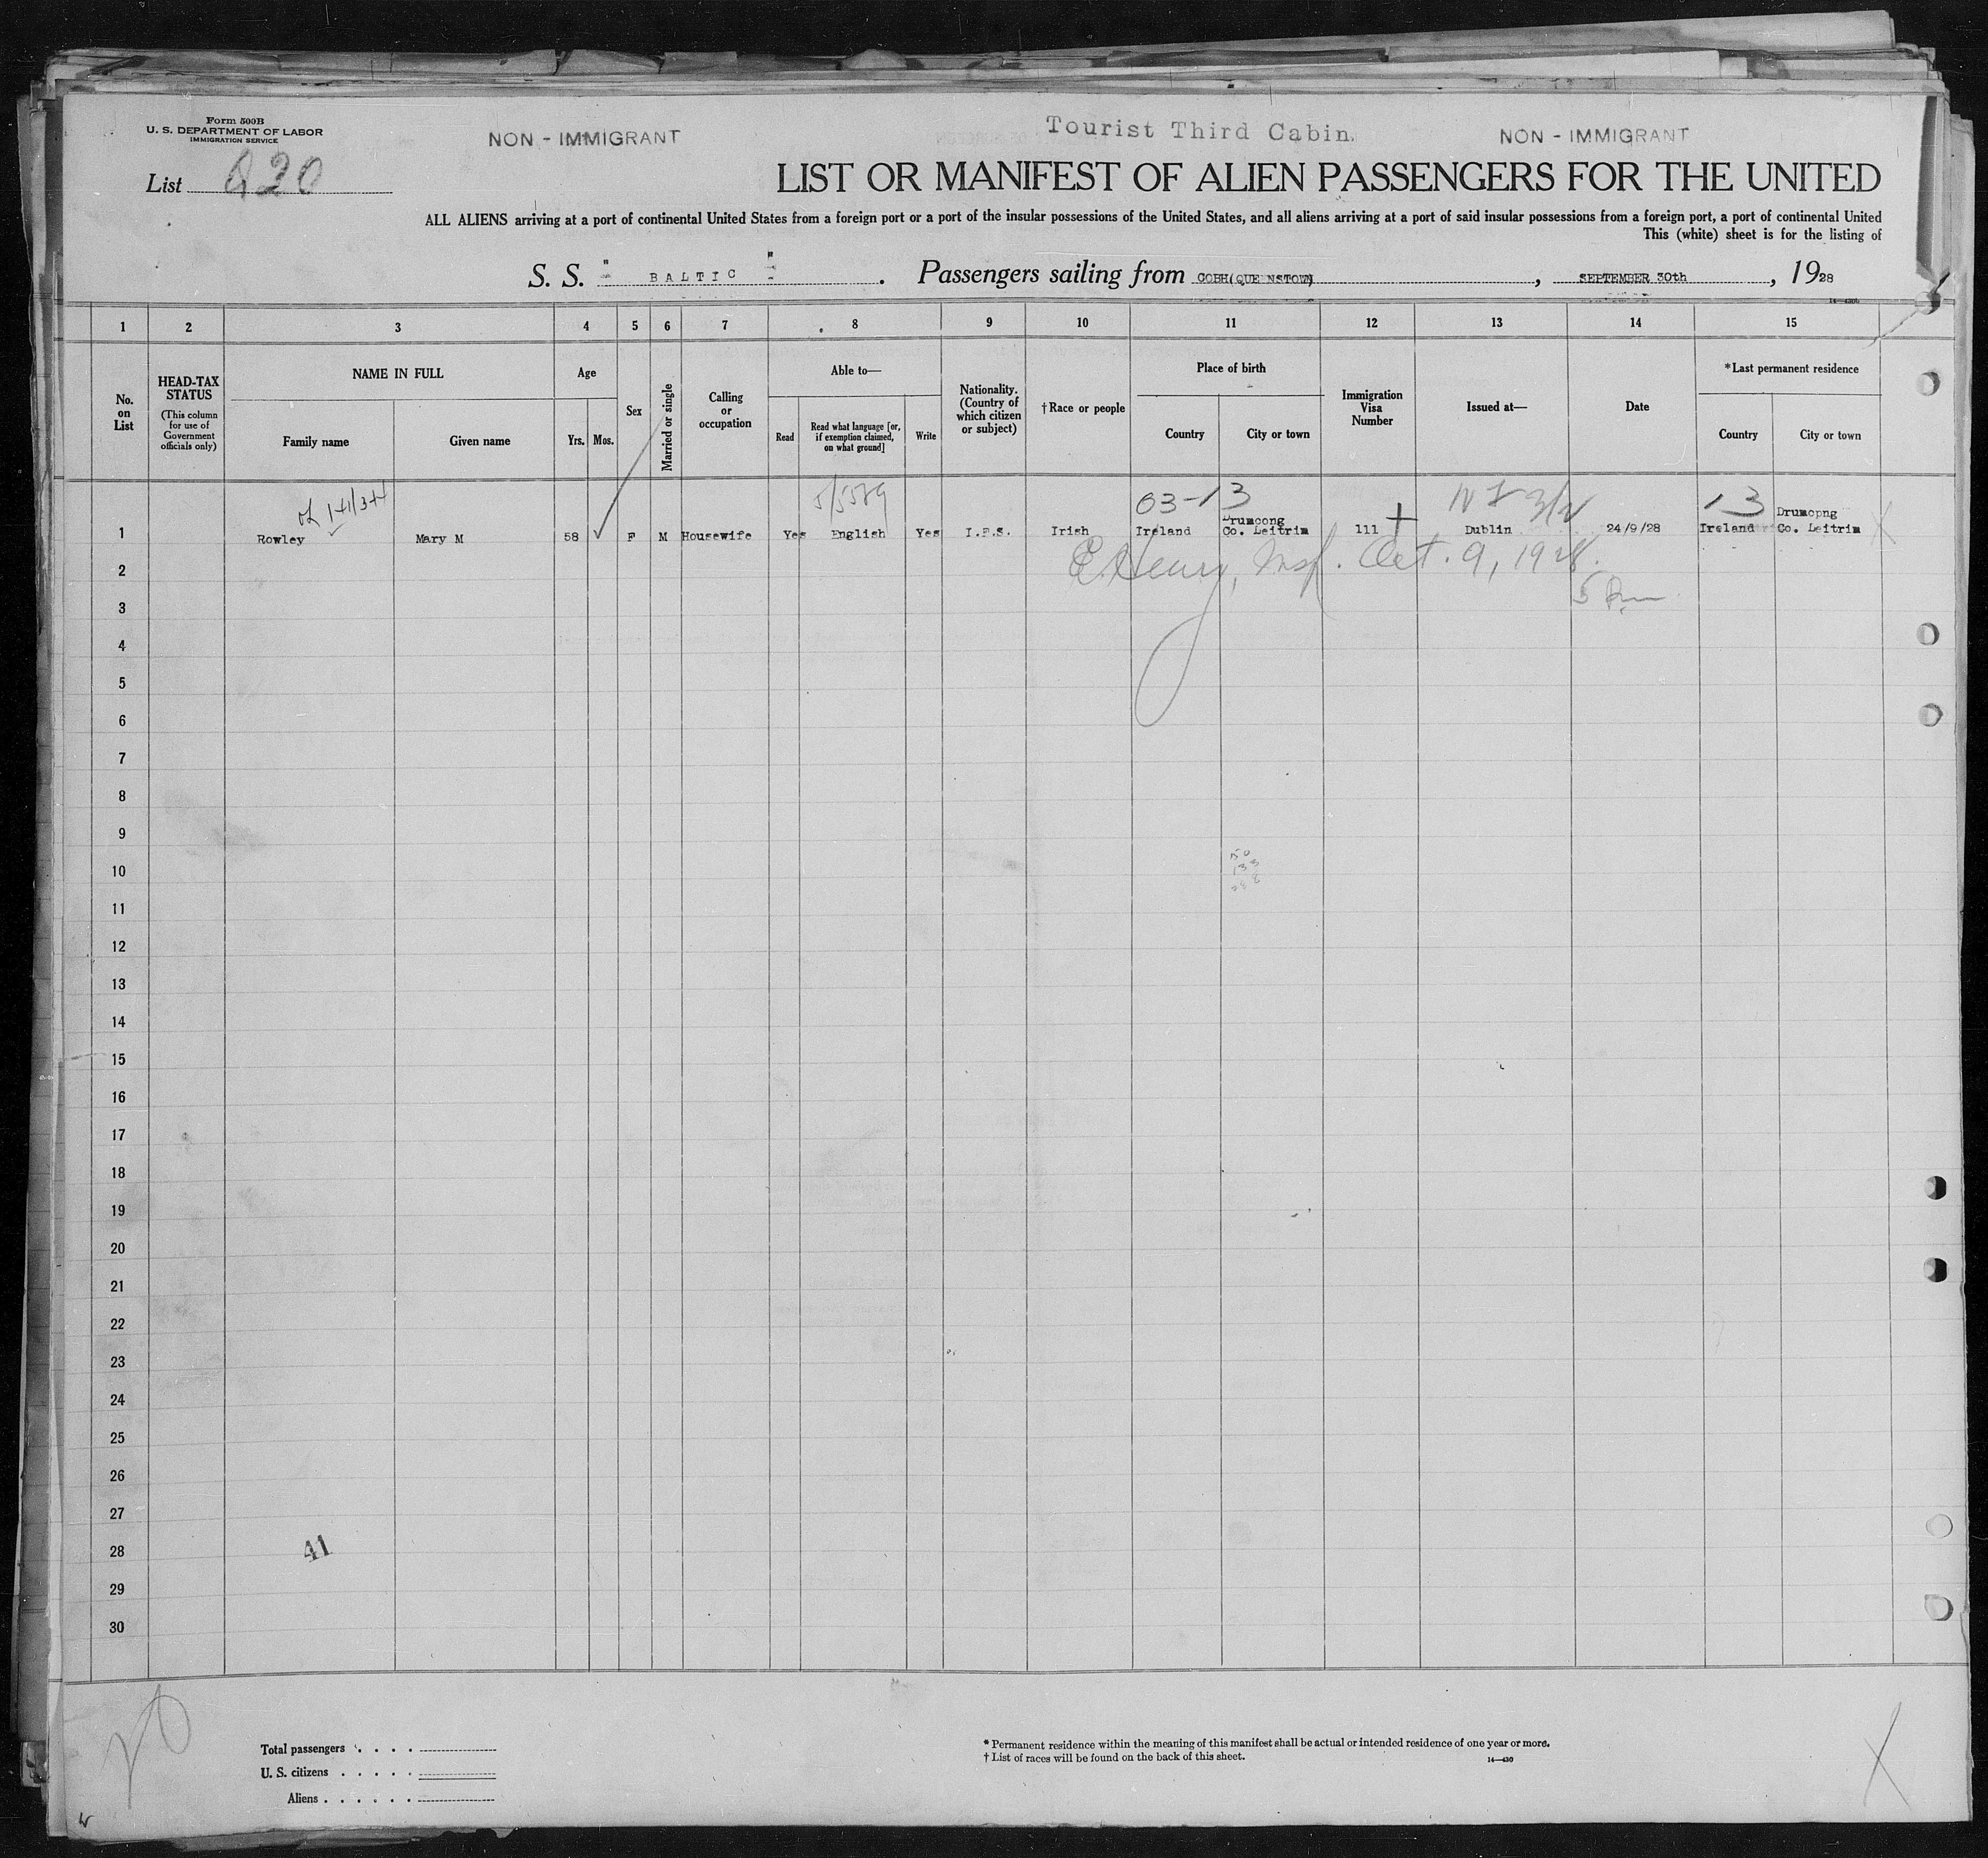 Form 500B
U. S. DEPARTMENT OF LABOR
IMMIGRATION SERVICE
NON - IMMIGRANT
Tourist Third Cabin.
NON - IMMIGRANT
List 220
LIST OR MANIFEST OF ALIEN PASSENGERS FOR THE UNITED
ALL ALIENS arriving at a port of continental United States from a foreign port or a port of the insular possessions of the United States, and all aliens arriving at a port of said insular possessions from a foreign port, a port of continental United
This (white) sheet is for the listing of
S. S. " BALTIC " . Passengers sailing from COBH(QUEENSTOWN) , SEPTEMBER 30th , 1928
1 2 3 4 5 6 7 8 9 10 11 12 13 14 15
No. on List
HEAD-TAX STATUS
(This column for use of Government officials only)
NAME IN FULL
Family name
Given name
Age
Yrs.
Mos.
Sex
Married or single
Calling or occupation
Able to—
Read
Read what language [or, if exemption claimed, on what ground]
Write
Nationality. (Country of which citizen or subject)
†Race or people
Place of birth
Country
City or town
Immigration Visa Number
Issued at—
Date
*Last permanent residence
Country
City or town
03-13
13
1 Rowley Mary M 58 F M Housewife Yes English Yes I.F.S. Irish Ireland Drumcong Co. Leitrim 111 Dublin 24/9/28 Ireland Drumcong Co. Leitrim
Insp. Oct. 9, 1928.
2
3
4
5
6
7
8
9
10
11
12
13
14
15
16
17
18
19
20
21
22
23
24
25
26
27
28
41
29
30
20
Total passengers . . . .
U. S. citizens . . . . .
Aliens . . . . . .
* Permanent residence within the meaning of this manifest shall be actual or intended residence of one year or more.
† List of races will be found on the back of this sheet.
14—430